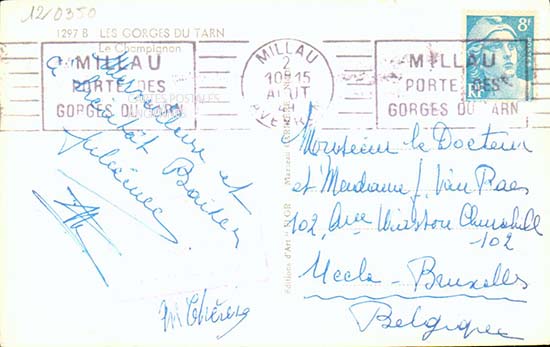 12/0350
1297 B LES GORGES DU TARN
Le Champignon
MILLAU
PORTE DES
GORGES DU TARN
MILLAU
2
10H15
AOUT
AVEYRON
MILLAU
PORTE DES
GORGES DU TARN
8F
RF
et
à bientôt Baisers
M Thérèse
Editions d'Art
Monsieur le Docteur
et Madame J. Van Raes
102, Ave Winston Churchill
102
Uccle-Bruxelles
Belgique